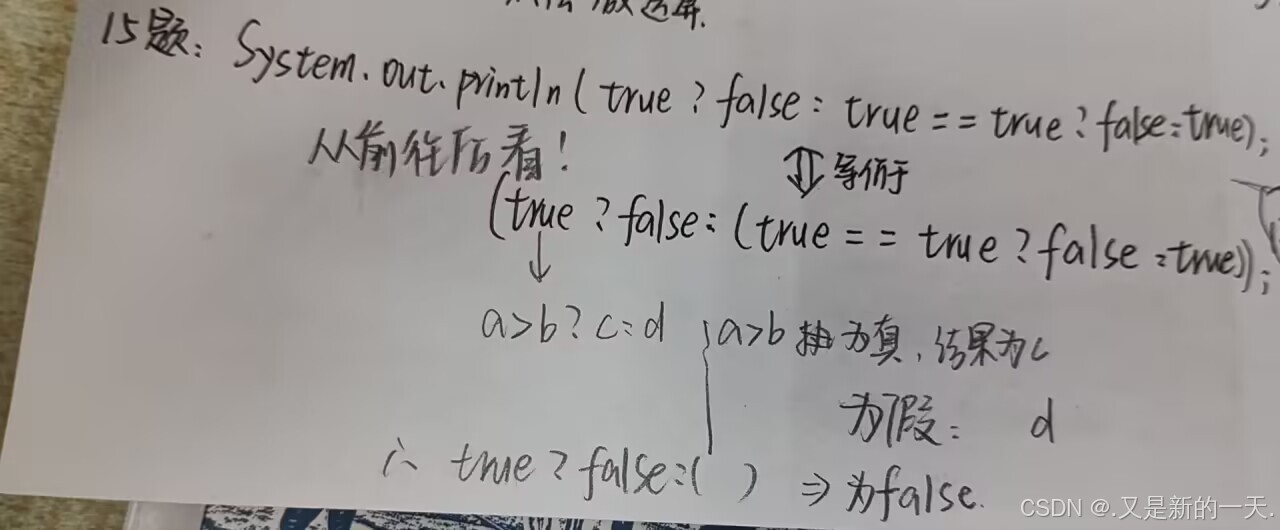 15题: System.out.println(true ? false : true == true ? false : true);
从前往后看!
等价于
(true ? false : (true == true ? false : true));
a>b ? c : d
a>b 为真, 结果为c
为假: d
∴ true ? false : ( ) ⇒ 为false.
CSDN @.又是新的一天.